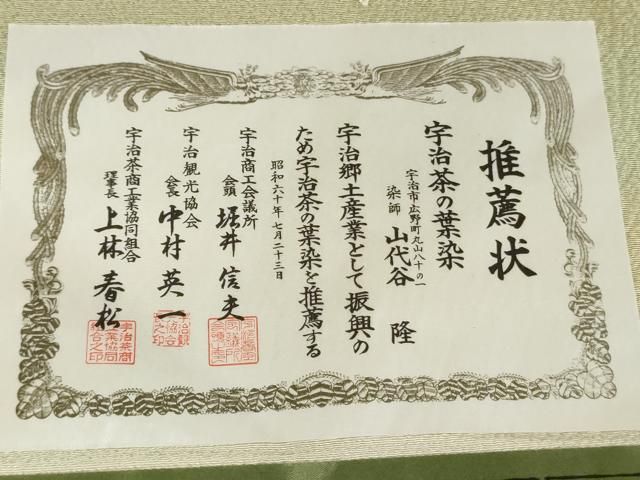 推薦状
宇治茶の葉染
宇治市広野町丸山八十の一
染師 山代谷 隆
宇治郷土産業として振興の
ため宇治茶の葉染を推薦する
昭和六十年七月二十三日
宇治商工会議所
会頭 堀井信夫
宇治観光協会
会長 中村英一
宇治茶商工業協同組合
理事長 上林春松